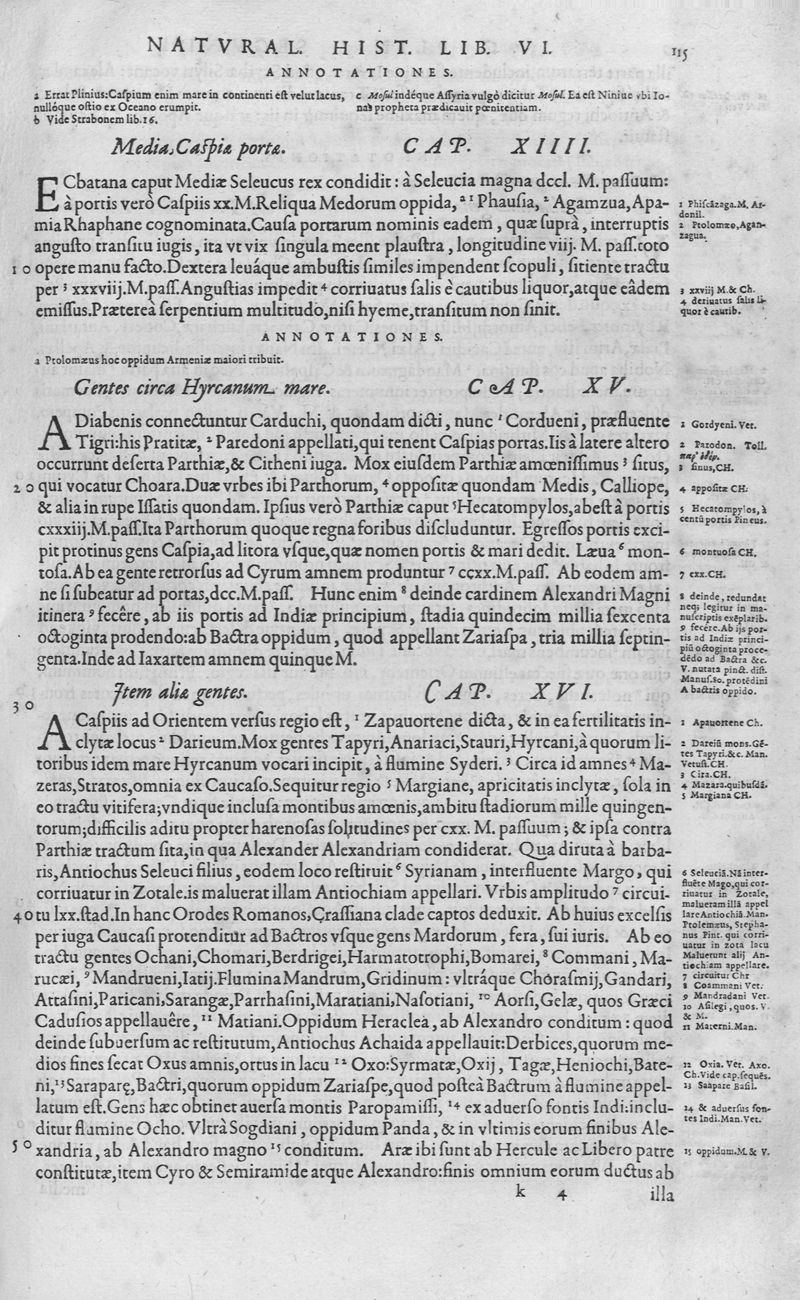 NATVRAL. HIST. LIB. VI.
115
ANNOTATIONES.
a Errat Plinius: Caspium enim mare in continenti est velut lacus,
nullóque ostio ex Oceano erumpit.
b Vide Strabonem lib. 16.
c Mosul indéque Assyria vulgò dicitur Mosul. Ea est Niniue vbi Io-
nas propheta prædicauit pœnitentiam.
Media, Caspiæ portæ. CAP. XIIII.
ECbatana caput Mediæ Seleucus rex condidit: à Seleucia magna dccl. M. passuum:
à portis verò Caspiis xx.M.Reliqua Medorum oppida, a 1 Phausia, 2 Agamzua, Apa-
mia Rhaphane cognominata. Causa portarum nominis eadem, quæ suprà, interruptis
angusto transitu iugis, ita vt vix singula meent plaustra, longitudine viij. M. pass. toto
10 opere manu facto. Dextera leuáque ambustis similes impendent scopuli, sitiente tractu
per 3 xxxviij.M.pass. Angustias impedit 4 corriuatus salis è cautibus liquor, atque eâdem
emissus. Præterea serpentium multitudo, nisi hyeme, transitum non sinit.
1 Phiscázaga.M. Ar-
donil.
2 Ptolomæo, Agan-
zagua.
3 xxviij M.& Ch.
4 deriuatus salis li-
quor è cautib.
ANNOTATIONES.
a Ptolomæus hoc oppidum Armeniæ maiori tribuit.
Gentes circa Hyrcanum mare. CAP. XV.
ADiabenis connectuntur Carduchi, quondam dicti, nunc 1 Cordueni, præfluente
Tigri: his Pratitæ, 2 Paredoni appellati, qui tenent Caspias portas. Iis à latere altero
occurrunt deserta Parthiæ, & Citheni iuga. Mox eiusdem Parthiæ amœnissimus 3 situs,
20 qui vocatur Choara. Duæ vrbes ibi Parthorum, 4 oppositæ quondam Medis, Calliope,
& alia in rupe Issatis quondam. Ipsius verò Parthiæ caput 5 Hecatompylos, abest à portis
cxxxiij.M.pass. Ita Parthorum quoque regna foribus discluduntur. Egressos portis exci-
pit protinus gens Caspia, ad litora vsque, quæ nomen portis & mari dedit. Læua 6 mon-
tosa. Ab ea gente retrorsus ad Cyrum amnem produntur 7 ccxx.M.pass. Ab eodem am-
ne si subeatur ad portas, dcc.M.pass. Hunc enim 8 deinde cardinem Alexandri Magni
itinera 9 fecêre, ab iis portis ad Indiæ principium, stadia quindecim millia sexcenta
octoginta prodendo: ab Bactra oppidum, quod appellant Zariaspa, tria millia septin-
genta. Inde ad Iaxartem amnem quinque M.
1 Gordyeni. Vet.
2 Parodon. Toll.
3 sinus, CH.
4 appositæ CH.
5 Hecatompylos, à
centũ portis Pineus.
6 montuosa CH.
7 cxx. CH.
8 deinde, redundat
neq; legitur in ma-
nuscriptis exẽplarib.
9 fecére. Ab ijs por-
tis ad Indiæ princi-
piũ octoginta proce-
dẽdo ad Bactra &c.
V. nutata pinct. dist.
Manus. 80. protẽdini
A bactris oppido.
Item aliæ gentes. CAP. XVI.
30
ACaspiis ad Orientem versus regio est, 1 Zapauortene dicta, & in ea fertilitatis in-
clytæ locus 2 Darieum. Mox gentes Tapyri, Anariaci, Stauri, Hyrcani, à quorum li-
toribus idem mare Hyrcanum vocari incipit, à flumine Syderi. 3 Circa id amnes 4 Ma-
zeras, Stratos, omnia ex Caucaso. Sequitur regio 5 Margiane, apricitatis inclytæ, sola in
eo tractu vitifera; vndique inclusa montibus amœnis, ambitu stadiorum mille quingen-
torum; difficilis aditu propter harenosas solitudines per cxx. M. passuum; & ipsa contra
Parthiæ tractum sita, in qua Alexander Alexandriam condiderat. Qua diruta à barba-
ris, Antiochus Seleuci filius, eodem loco restituit 6 Syrianam, interfluente Margo, qui
corriuatur in Zotale. is maluerat illam Antiochiam appellari. Vrbis amplitudo 7 circui-
40 tu lxx. stad. In hanc Orodes Romanos, Crassiana clade captos deduxit. Ab huius excelsis
per iuga Caucasi protenditur ad Bactros vsque gens Mardorum, fera, sui iuris. Ab eo
tractu gentes Ochani, Chomari, Berdrigei, Harmatotrophi, Bomarei, 8 Commani, Ma-
rucæi, 9 Mandrueni, Iatij. Flumina Mandrum, Gridinum: vltráque Chorasmij, Gandari,
Attasini, Paricani, Sarangæ, Parrhasini, Maratiani, Nasotiani, 10 Aorsi, Gelæ, quos Græci
Cadusios appellauêre, 11 Matiani. Oppidum Heraclea, ab Alexandro conditum: quod
deinde subuersum ac restitutum, Antiochus Achaida appellauit: Derbices, quorum me-
dios fines secat Oxus amnis, ortus in lacu 12 Oxo: Syrmatæ, Oxij, Tagæ, Heniochi, Bate-
ni, 13 Saraparę, Bactri, quorum oppidum Zariaspe, quod posteà Bactrum à flumine appel-
latum est. Gens hæc obtinet auersa montis Paropamissi, 14 ex aduerso fontis Indi: inclu-
ditur flumine Ocho. Vltrà Sogdiani, oppidum Panda, & in vltimis eorum finibus Ale-
50 xandria, ab Alexandro magno 15 conditum. Aræ ibi sunt ab Hercule ac Libero patre
constitutæ, item Cyro & Semiramide atque Alexandro: finis omnium eorum ductus ab
1 Apauortene Ch.
2 Dareiũ mons. Gẽ-
tes Tapyri. &c. Man.
Vetust. CH.
3 Cira. CH
4 Mazara. quibusdã.
5 Margiana CH.
6 Seleuciã. Nã inter-
fluẽte Mago, qui cor-
riuatur in Zotale,
malueram illã appel
lare Antiochiã. Man.
Ptolemæus, Stepha-
nus Pint. qui corri-
uatur in zota lacu
Maluerunt alij An-
tiochiam appellare.
7 circuitur Chr
8 Coammani Vet.
9 Mandradani Vet.
10 Asilegi, quos. V.
& M.
11 Materni. Man.
12 Oxia. Vet. Axo.
Ch. Vide cap. sequẽs.
13 Saapare Basil.
14 & aduersus fon-
tes Indi. Man. Vet.
15 oppidum. M. & V.
k 4 illa